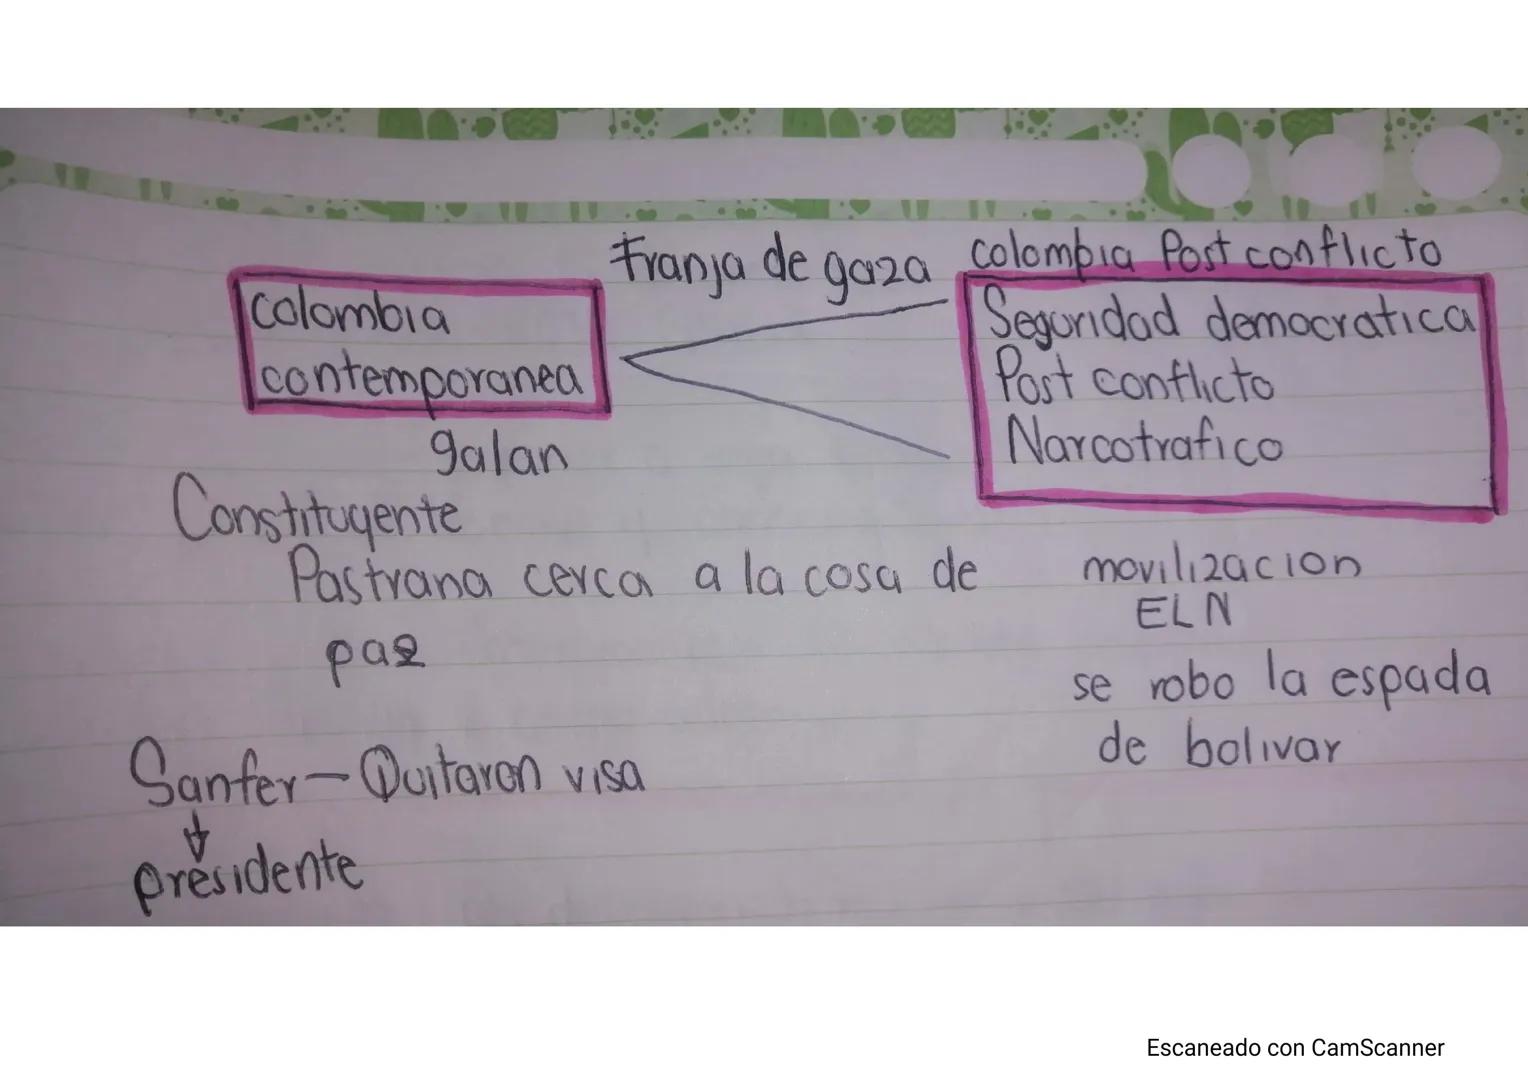 Franja de gaza
colombia Post conflicto
colombia
contemporanea
Seguridad democratica
Post conflicto
Narcotrafico
galan
Constituyente
Pastrana cerca a la cosa de
paz
movilizacion
ELN
se robo la espada
de bolivar
Sanfer - Quitaron visa
presidente
Escaneado con CamScanner